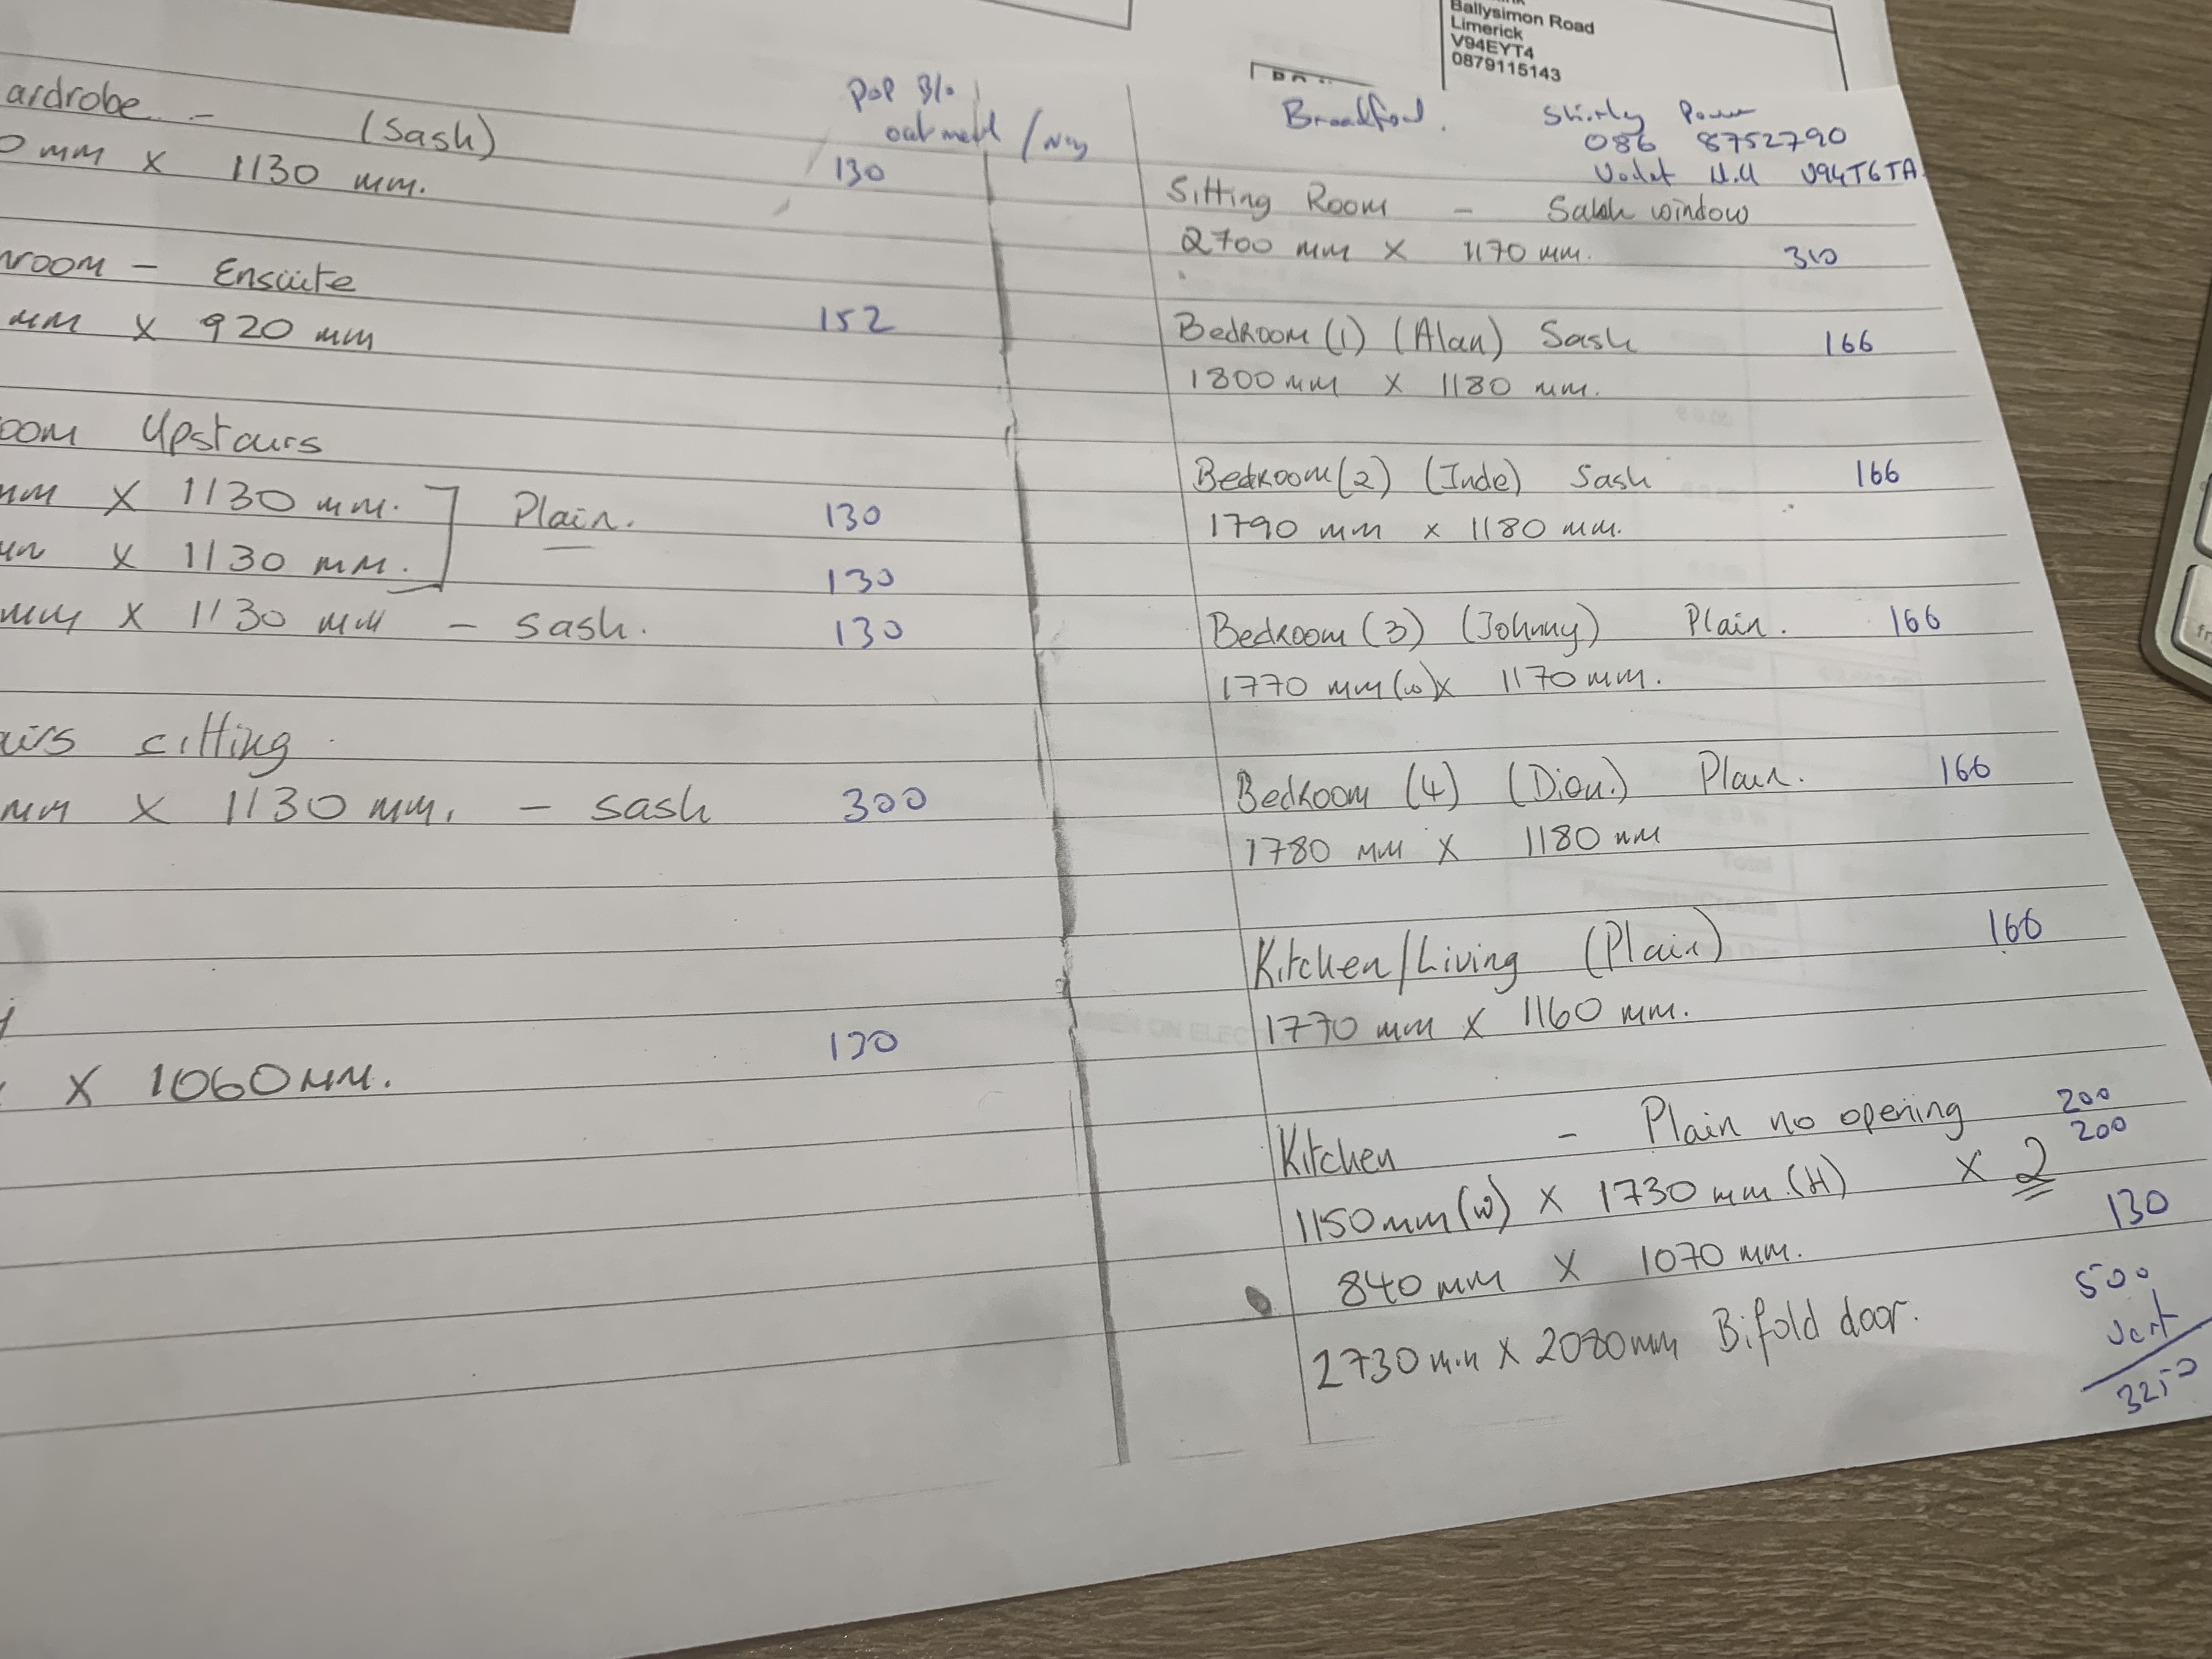 Ballysimon Road
Limerick
V94EYT4
0879115143
ardrobe - (Sash)
0 mm x 1130 mm. 130
room - Ensuite
mm x 920 mm 152
oom Upstairs
mm x 1130 mm. Plain. 130
x 1130 mm. 130
mm x 1130 mm - sash. 130
airs sitting
mm x 1130 mm. - sash 300
x 1060mm. 130
Pop B/o
oatmeal /
Broadford. Shirly Power
086 8752790
V94T6TA
Sitting Room - Sash window
2700 mm x 1170 mm. 310
Bedroom (1) (Alan) Sash 166
1800 mm x 1180 mm.
Bedroom (2) (Inde) Sash 166
1790 mm x 1180 mm.
Bedroom (3) (Johnny) Plain. 166
1770 mm (w) x 1170 mm.
Bedroom (4) (Dion.) Plain. 166
1780 mm x 1180 mm
Kitchen/Living (Plain) 166
1770 mm x 1160 mm.
Kitchen - Plain no opening 200
200
1150mm (w) x 1730 mm. (H) x 2
840 mm x 1070 mm. 130
2730 mm x 2080mm Bifold door. 500
Vert
3250